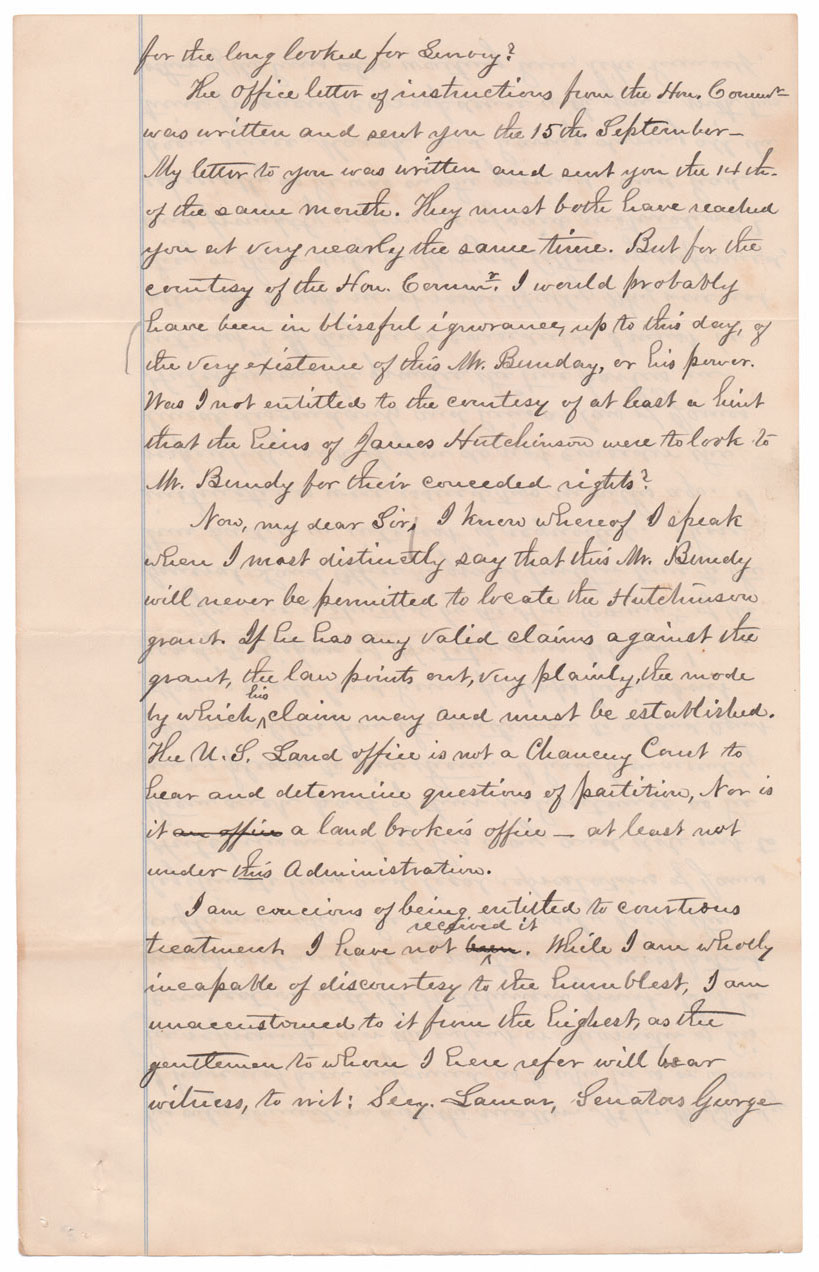 for the long looked for Survey?
The Office letter of instructions from the Hon. Commr
was written and sent you the 15th. September—
My letter to you was written and sent you the 14th.
of the same month. They must both have reached
you at very nearly the same time. But for the
courtesy of the Hon. Commr. I would probably
have been in blissful ignorance, up to this day, of
the very existence of this Mr. Bunday, or his power.
Was I not entitled to the courtesy of at least a hint
that the heirs of James Hutchinson were to look to
Mr. Bundy for their conceded rights?
Now, my dear Sir, I know whereof I speak
when I most distinctly say that this Mr. Bundy
will never be permitted to locate the Hutchinson
grant. If he has any valid claims against the
grant, the law points out, very plainly, the mode
by which his claim may and must be established.
The U.S. Land office is not a Chancery Court to
hear and determine questions of partition, Nor is
it an office a land broker's office — at least not
under this Administration.
I am concious of being entitled to courtious
treatment. I have not been received it. While I am wholly
incapable of discourtesy to the humblest, I am
unaccustomed to it from the highest, as the
gentlemen to whom I here refer will bear
witness, to wit: Secy. Lamar, Senators George